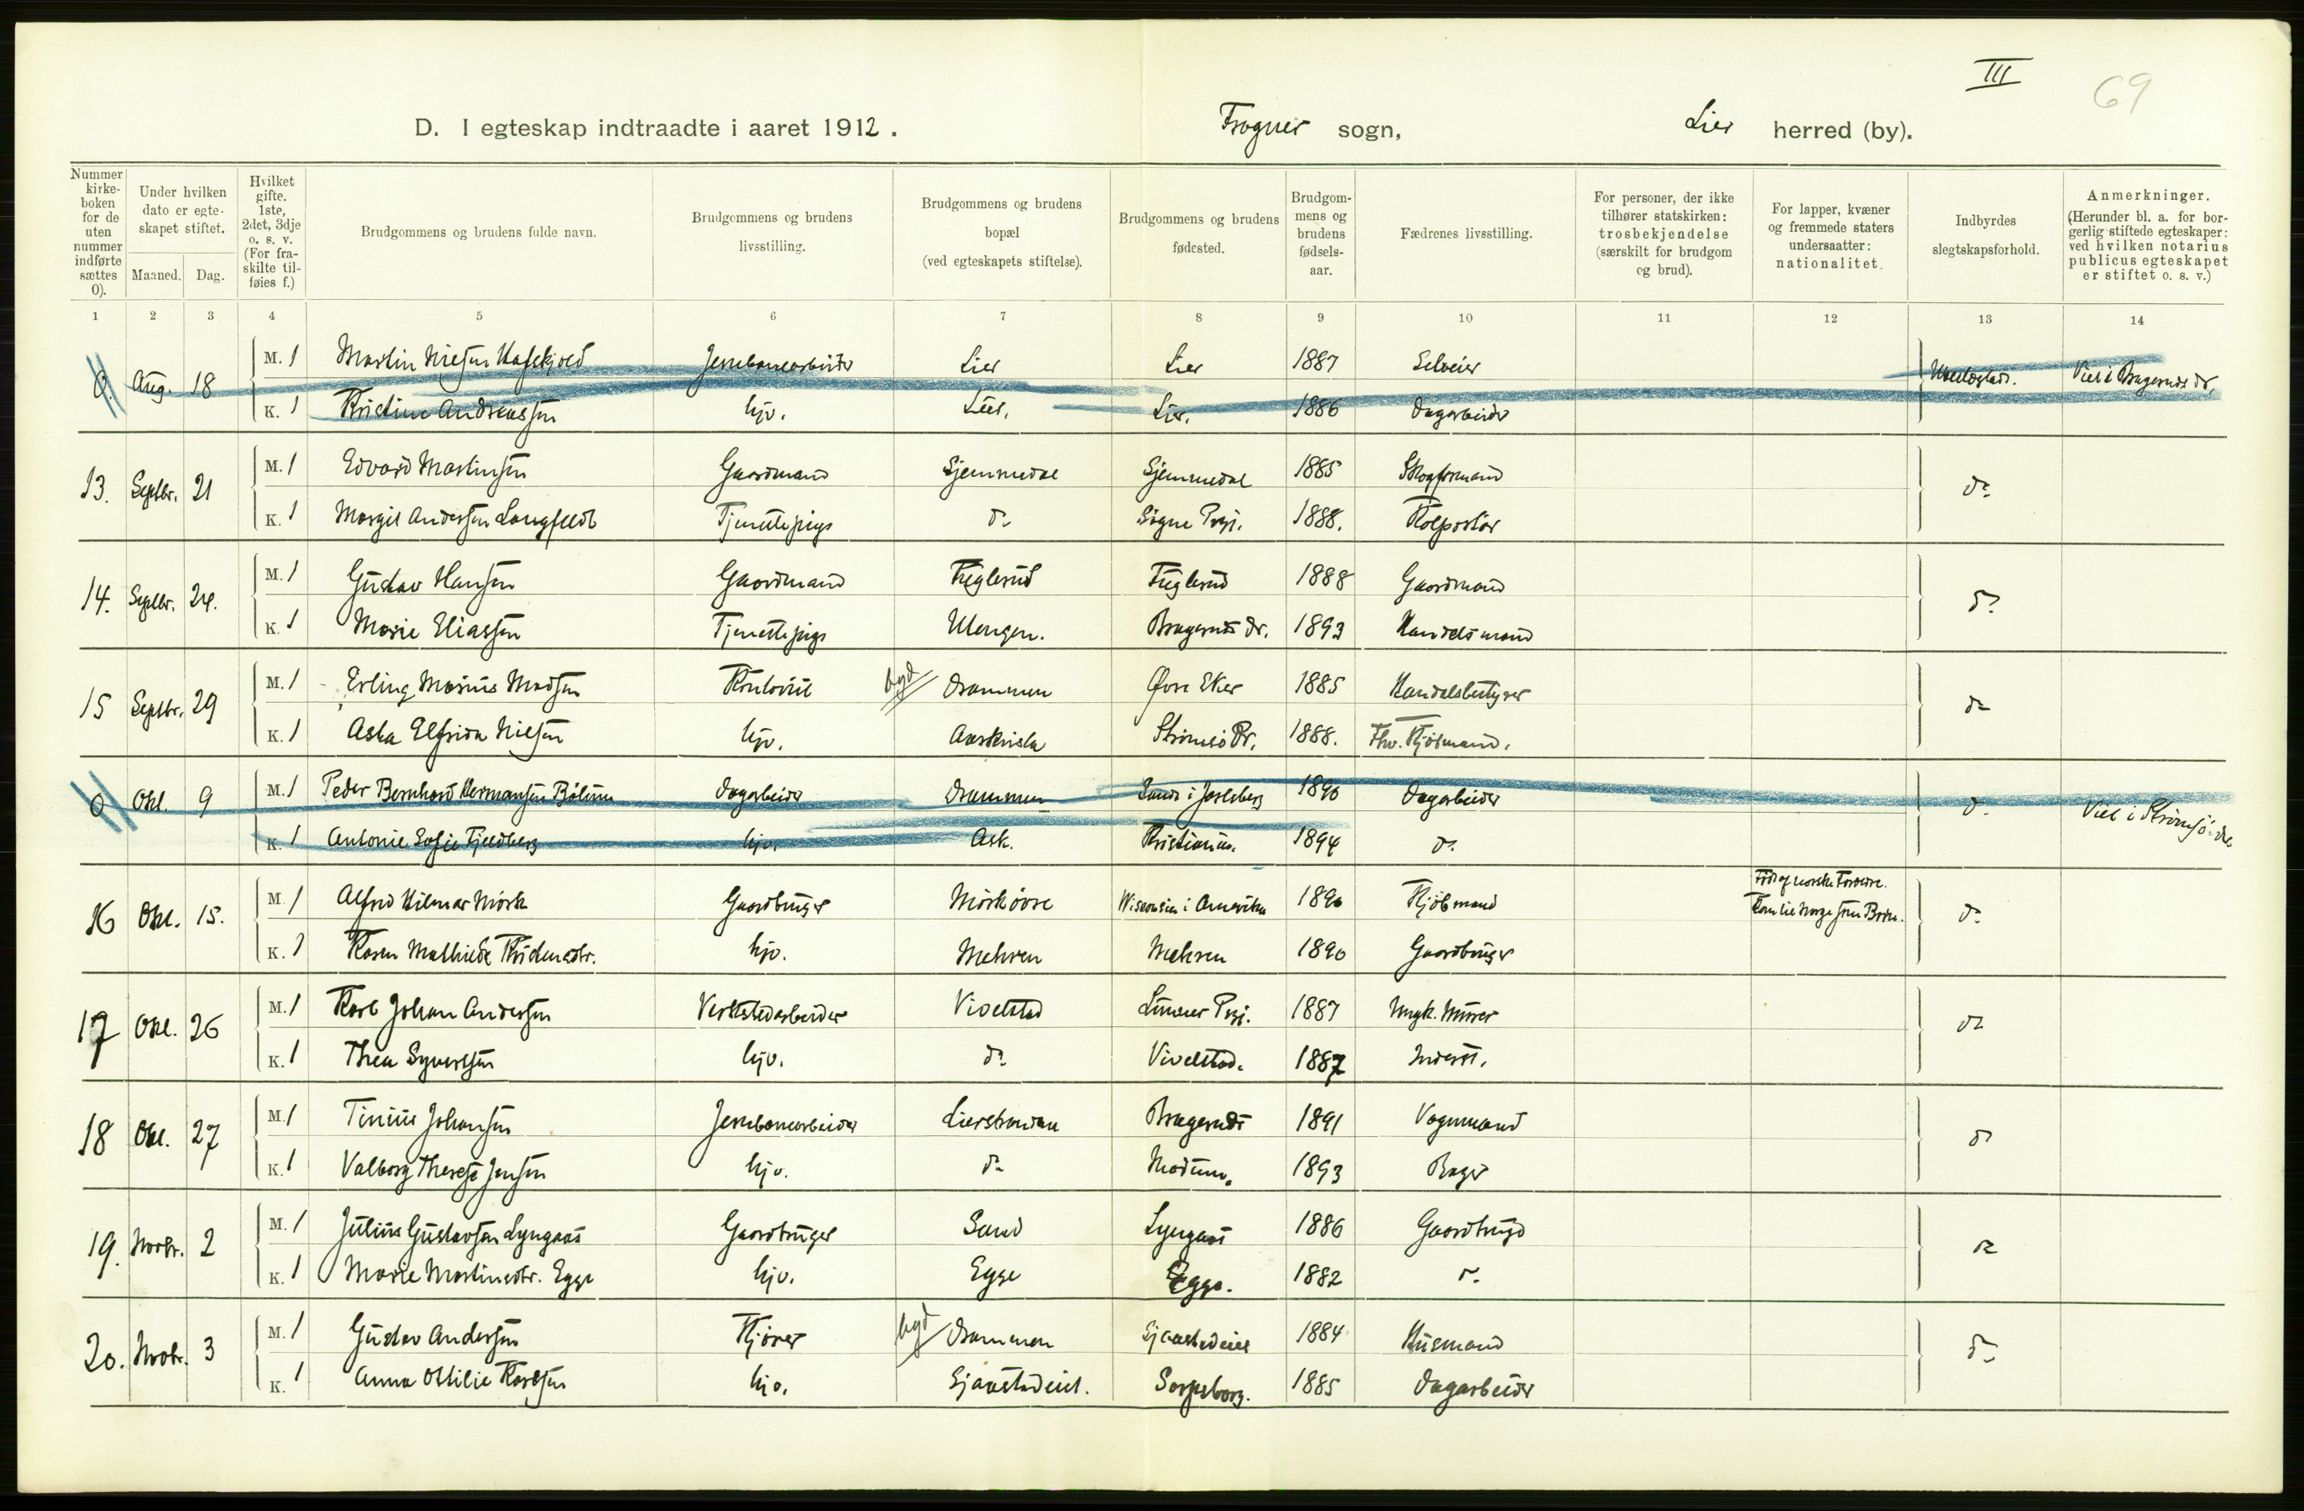 III
69
D. I egteskap indtraadte i aaret 1912. Frogner sogn, Lier herred (by).
Nummer i kirkeboken for de uten nummer indførte sættes 0). Under hvilken dato er egteskapet stiftet. Maaned. Dag. Hvilket gifte. 1ste, 2det, 3dje o. s. v. (For fraskilte tilføies f.) Brudgommens og brudens fulde navn. Brudgommens og brudens livsstilling. Brudgommens og brudens bopæl (ved egteskapets stiftelse). Brudgommens og brudens fødested. Brudgommens og brudens fødselsaar. Fædrenes livsstilling. For personer, der ikke tilhører statskirken: trosbekjendelse (særskilt for brudgom og brud). For lapper, kvæner og fremmede staters undersaatter: nationalitet. Indbyrdes slegtskapsforhold. Anmerkninger. (Herunder bl. a. for borgerlig stiftede egteskaper: ved hvilken notarius publicus egteskapet er stiftet o. s. v.)
1 2 3 4 5 6 7 8 9 10 11 12 13 14
0. Aug. 18 M. 1 Martin Nielsen Jernbanearbeider Lier Lier 1887 Selveier Viet i Bragernes Dr.
K. 1 Kristine Andreassen hjv. Lier. Lier. 1886 Dagarbeider
13. Septbr. 21 M. 1 Edvard Martinsen Gaardmand Gjemmedal Gjemmedal 1885 Skogformand do
K. 1 Margit Andersen Langfeldt Tjenestepige do Sogne Prgj. 1888. Kolportør
14. Septbr. 24. M. 1 Gustav Hansen Gaardmand Fuglerud Fuglerud 1888 Gaardmand do
K. 1 Marie Eliassen Tjenestepige Ulengen. Bragernes Dr. 1893 Handelsmand
15 Septbr. 29 M. 1 Erling Marius Madsen Kontorist byd Drammen Øvre Eker 1885 Handelsbestyrer do
K. 1 Asta Elfrida Nielsen hjv. Aaskvisla Strømsø Dr. 1888. Fhv. Kjøbmand.
0 Okt. 9 M. 1 Peder Bernhard Hermansen Dagarbeider Drammen Sande i Jarlsberg 1890 Dagarbeider do Viet i Strømsø. Dr.
K. 1 Antonie Sofie Fjeldberg hjv. Ask. Kristiania. 1894 do
16 Okt. 15. M. 1 Alfred Hilmar Mørk Gaardbruger Mørk øvre Wisconsin i Amerika 1890 Kjøbmand Født af norske Forældre. do
K. 1 Karen Mathilde hjv. Mehren Mehren 1890 Gaardbruger
17 Okt. 26 M. 1 Karl Johan Andersen Verkstedarbeider Vivelstad Prgj. 1887 Murer do
K. 1 Thea Syvertsen hjv. do Vivelstad. 1887 Inderst.
18 Okt. 27 M. 1 Tinius Johansen Jernbanearbeider Lierstranden Bragernes 1891 Vognmand do
K. 1 Valborg Therese Jensen hjv. do Modum. 1893 Bager
19. Novbr. 2 M. 1 Julius Gustavsen Lyngaas Gaardbruger Sand Lyngaas 1886 Gaardbruger do
K. 1 Marie Martinsdtr. Egge hjv. Egge Egge. 1882 do
20. Novbr. 3 M. 1 Gustav Andersen Kjører byd Drammen Gjaastadeiet 1884 Husmand do
K. 1 Anna Ottilie Karlsen hjv. Gjaastadeiet. Sarpsborg. 1885 Dagarbeider